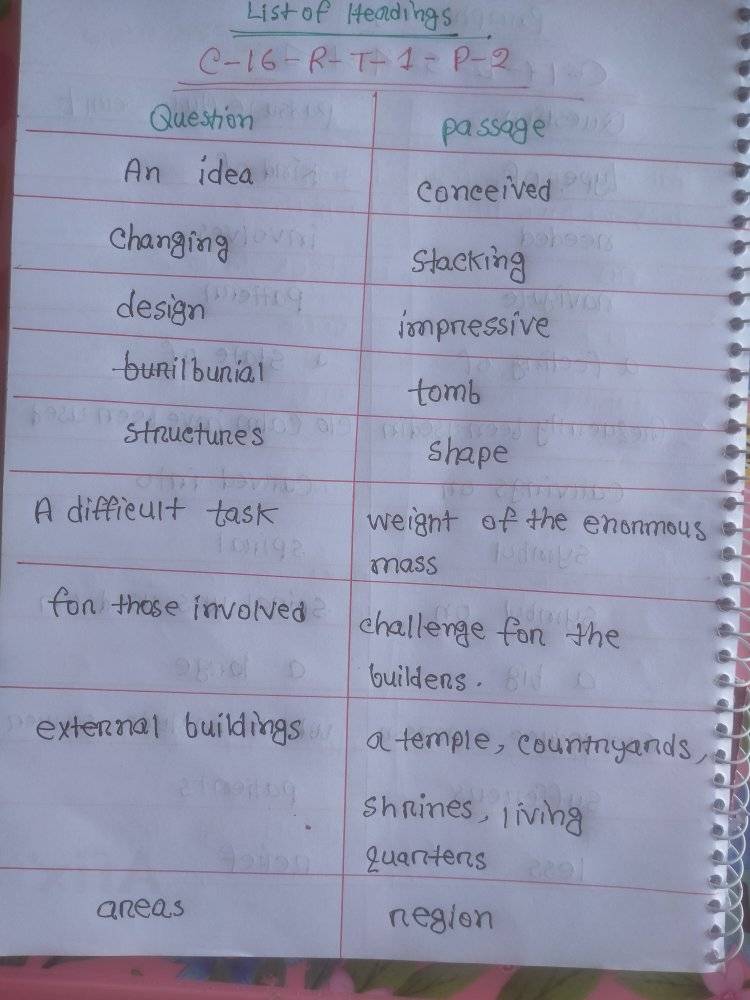 List of Headings
C-16-R-T-1-P-2
Question passage
An idea conceived
changing stacking
design impressive
burilburial tomb
structures shape
A difficult task weight of the enormous
mass
for those involved challenge for the
builders.
external buildings a temple, countryards,
shrines, living
quarters
areas region